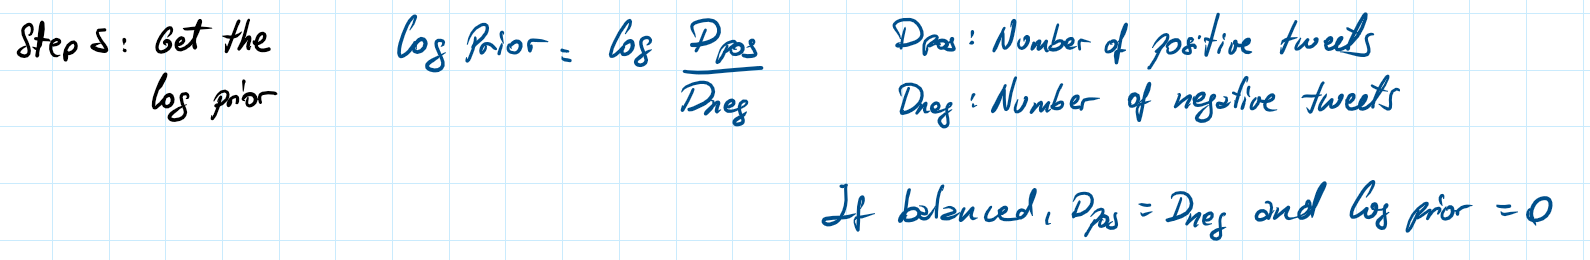 Step 5: Get the log prior
log Prior = log Dpos / Dneg
Dpos: Number of positive tweets
Dneg: Number of negative tweets
If balanced, Dpos = Dneg and log prior = 0